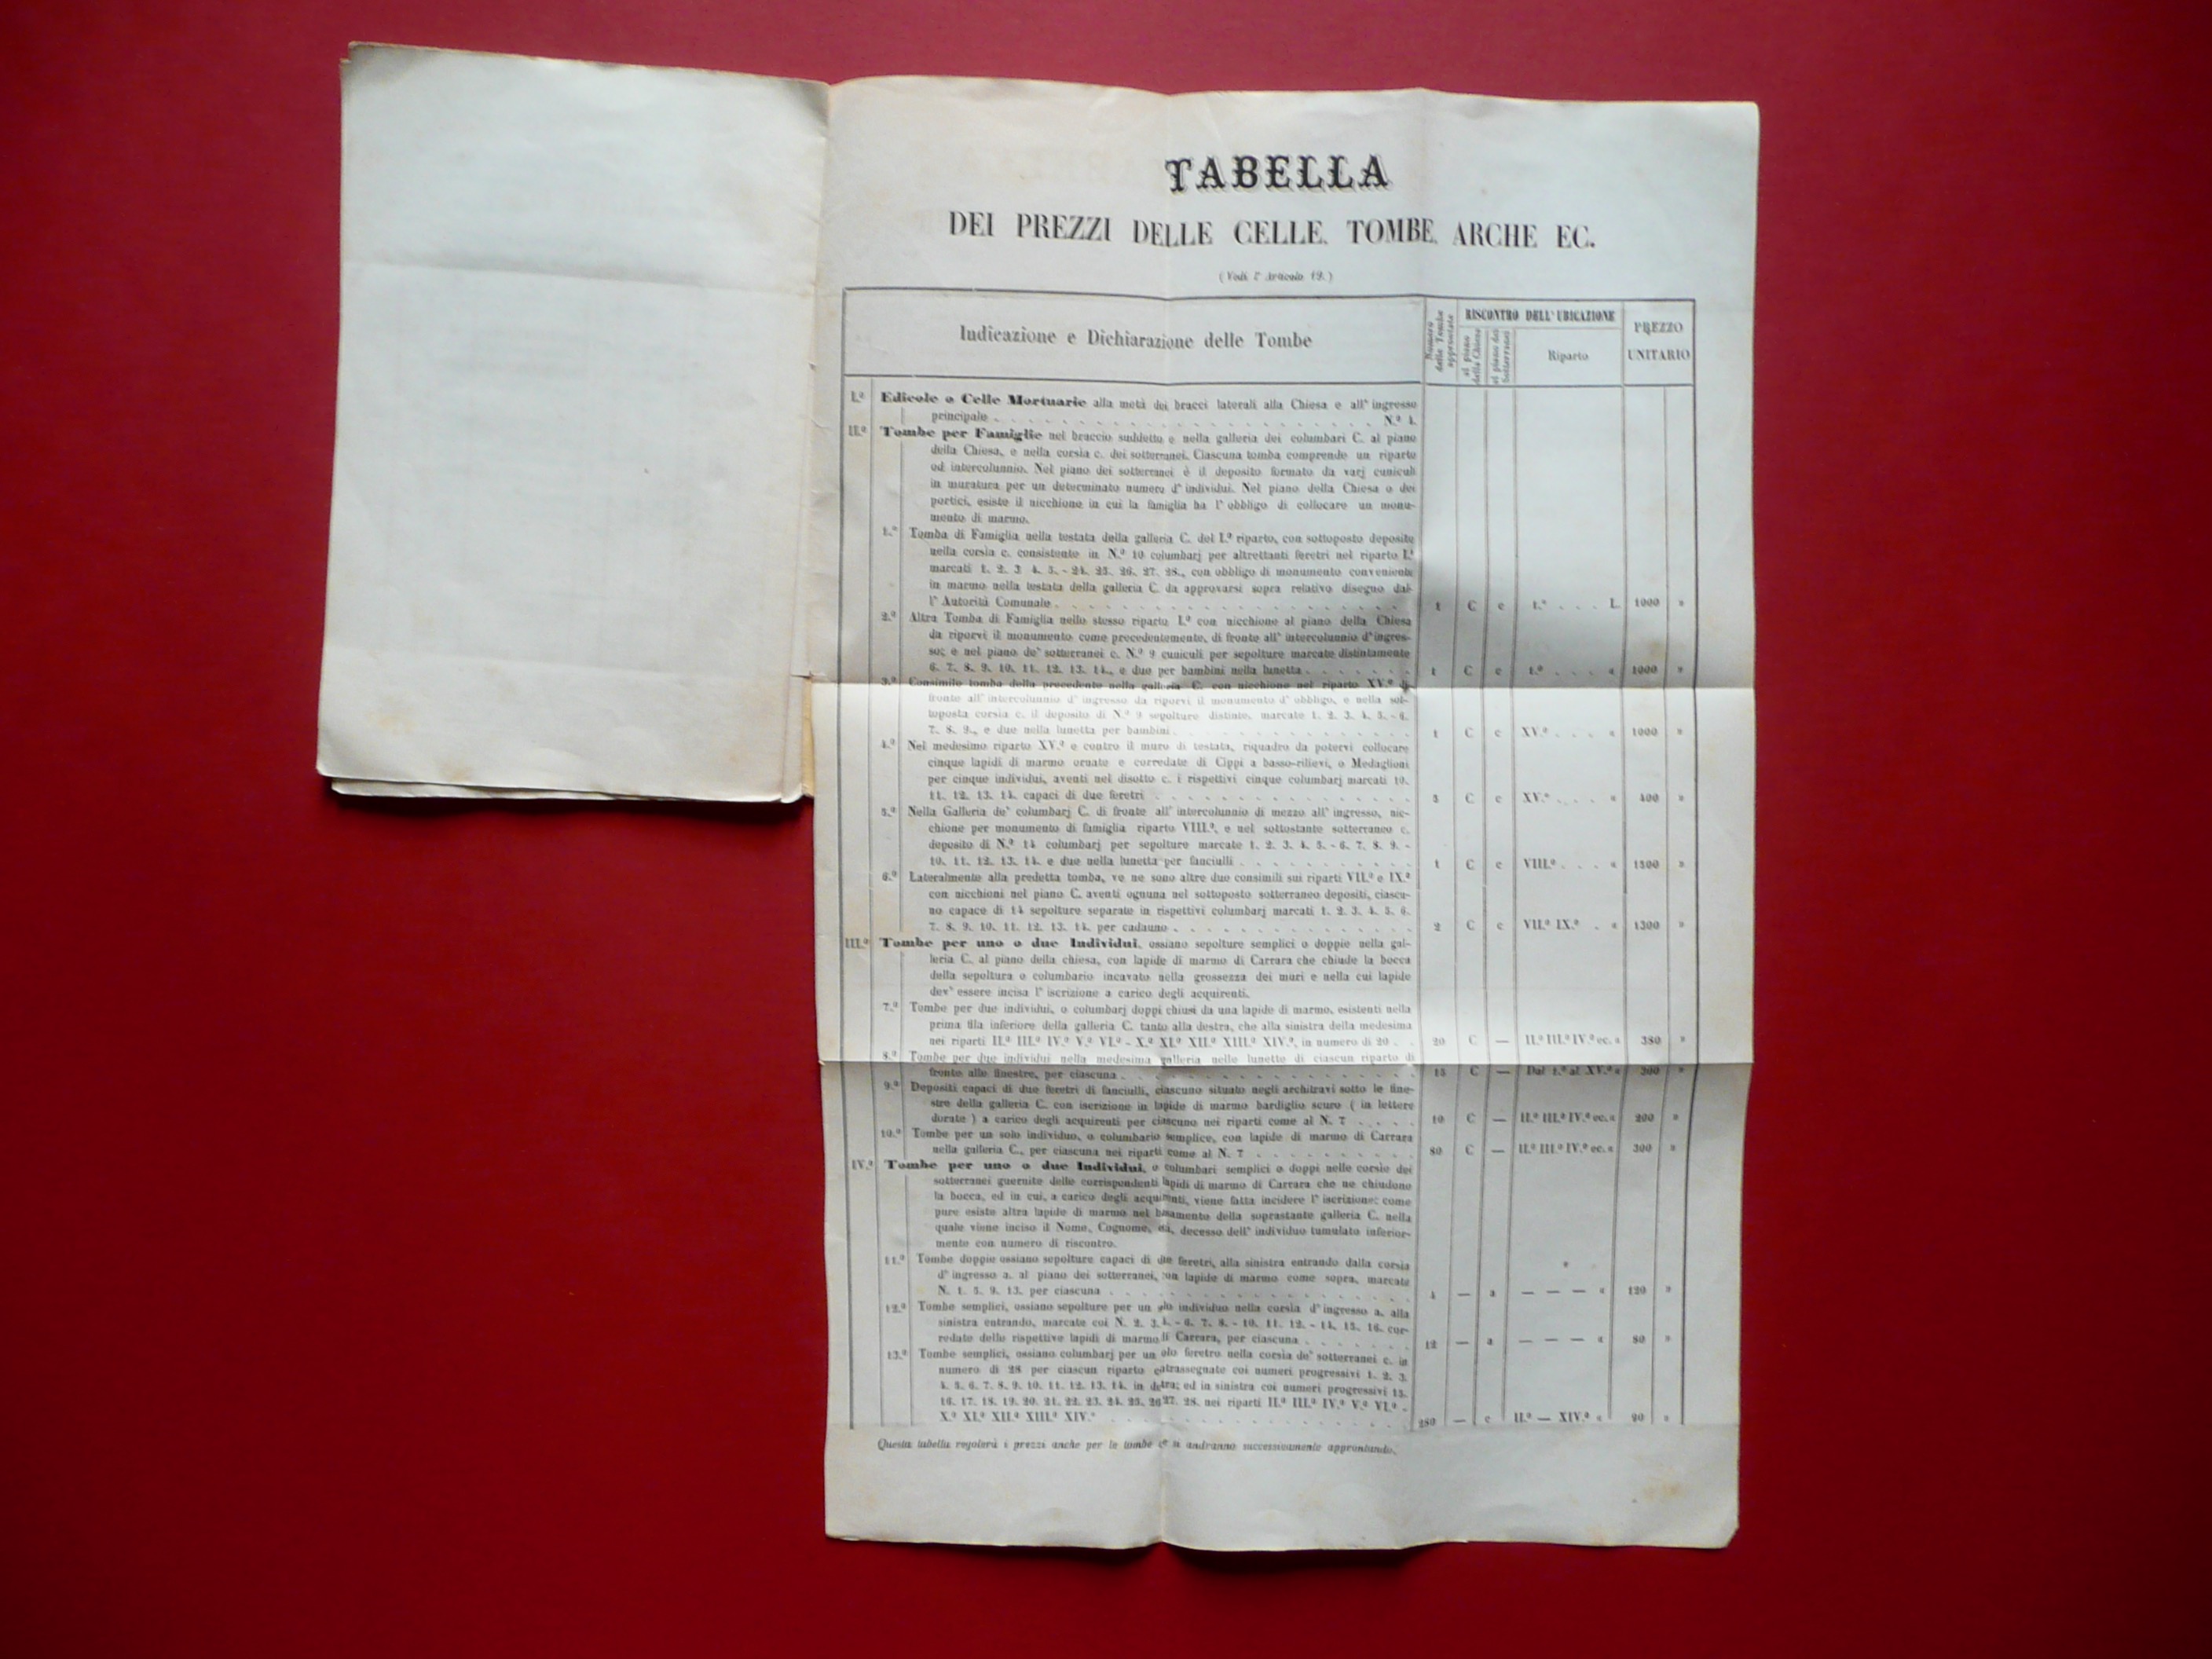 TABELLA
DEI PREZZI DELLE CELLE, TOMBE, ARCHE EC.
(Vedi l' Articolo 19.)
Indicazione e Dichiarazione delle Tombe
Numero delle Tombe approntate
RISCONTRO DELL' UBICAZIONE
al piano della Chiesa
al piano dei Sotterranei
Riparto
PREZZO
UNITARIO
I.º Edicole o Celle Mortuarie alla metà dei bracci laterali alla Chiesa e all' ingresso
principale . . . N.º 4.
II.º Tombe per Famiglie nel braccio suddetto e nella galleria dei columbari C. al piano
della Chiesa, e nella corsia c. dei sotterranei. Ciascuna tomba comprende un riparto
od intercolunnio. Nel piano dei sotterranei è il deposito formato da varj cuniculi
in muratura per un determinato numero d' individui. Nel piano della Chiesa o dei
portici, esiste il nicchione in cui la famiglia ha l' obbligo di collocare un monu-
mento di marmo.
1.º Tomba di Famiglia nella testata della galleria C. del I.º riparto, con sottoposto deposito
nella corsia c. consistente in N.º 10 columbarj per altrettanti feretri nel riparto I.º
marcati 1. 2. 3. 4. 5. - 24. 25. 26. 27. 28., con obbligo di monumento conveniente
in marmo nella testata della galleria C. da approvarsi sopra relativo disegno dal-
l' Autorità Comunale . . . 1 C c 1.º . . . L. 1000 »
2.º Altra Tomba di Famiglia nello stesso riparto I.º con nicchione al piano della Chiesa
da riporvi il monumento come precedentemente, di fronte all' intercolunnio d' ingres-
so; e nel piano de' sotterranei c. N.º 9 cuniculi per sepolture marcate distintamente
6. 7. 8. 9. 10. 11. 12. 13. 14., e due per bambini nella lunetta . . . 1 C c 1.º . . . « 1000 »
3.º Consimile tomba della precedente nella galleria C. con nicchione nel riparto XV.º di
fronte all' intercolunnio d' ingresso da riporvi il monumento d' obbligo, e nella sot-
toposta corsia c. il deposito di N.º 9 sepolture distinte, marcate 1. 2. 3. 4. 5. - 6.
7. 8. 9., e due nella lunetta per bambini . . . 1 C c XV.º . . . « 1000 »
4.º Nel medesimo riparto XV.º e contro il muro di testata, riquadro da potervi collocare
cinque lapidi di marmo ornate e corredate di Cippi a basso-rilievi, o Medaglioni
per cinque individui, aventi nel disotto c. i rispettivi cinque columbarj marcati 10.
11. 12. 13. 14. capaci di due feretri . . . 5 C c XV.º . . . « 400 »
5.º Nella Galleria de' columbarj C. di fronte all' intercolunnio di mezzo all' ingresso, nic-
chione per monumento di famiglia riparto VIII.º, e nel sottostante sotterraneo c.
deposito di N.º 14 columbarj per sepolture marcate 1. 2. 3. 4. 5. - 6. 7. 8. 9. -
10. 11. 12. 13. 14. e due nella lunetta per fanciulli . . . 1 C c VIII.º . . . « 1500 »
6.º Lateralmente alla predetta tomba, ve ne sono altre due consimili sui riparti VII.º e IX.º
con nicchioni nel piano C. aventi ognuna nel sottoposto sotterraneo depositi, ciascu-
no capace di 14 sepolture separate in rispettivi columbarj marcati 1. 2. 3. 4. 5. 6.
7. 8. 9. 10. 11. 12. 13. 14. per cadauno . . . 2 C c VII.º IX.º . « 1300 »
III.º Tombe per uno o due Individui, ossiano sepolture semplici o doppie nella gal-
leria C. al piano della chiesa, con lapide di marmo di Carrara che chiude la bocca
della sepoltura o columbario incavato nella grossezza dei muri e nella cui lapide
dev' essere incisa l' iscrizione a carico degli acquirenti.
7.º Tombe per due individui, o columbarj doppi chiusi da una lapide di marmo, esistenti nella
prima fila inferiore della galleria C. tanto alla destra, che alla sinistra della medesima
nei riparti II.º III.º IV.º V.º VI.º - X.º XI.º XII.º XIII.º XIV.º, in numero di 20 . . 20 C — II.º III.º IV.º ec. « 380 »
8.º Tombe per due individui nella medesima galleria nelle lunette di ciascun riparto di
fronte alle finestre, per ciascuna . . . 15 C — Dal 1.º al XV.º « 300 »
9.º Depositi capaci di due feretri di fanciulli, ciascuno situato negli architravi sotto le fine-
stre della galleria C. con iscrizione in lapide di marmo bardiglio scuro ( in lettere
dorate ) a carico degli acquirenti per ciascuno nei riparti come al N. 7 . . . 10 C — II.º III.º IV.º ec. « 200 »
10.º Tombe per un solo individuo, o columbario semplice, con lapide di marmo di Carrara
nella galleria C., per ciascuna nei riparti come al N. 7 . . . 80 C — II.º III.º IV.º ec. « 300 »
IV.º Tombe per uno o due Individui, o columbari semplici o doppi nelle corsie dei
sotterranei guernite delle corrispondenti lapidi di marmo di Carrara che ne chiudono
la bocca, ed in cui, a carico degli acquirenti, viene fatta incidere l' iscrizione: come
pure esiste altra lapide di marmo nel basamento della soprastante galleria C. nella
quale viene inciso il Nome, Cognome, età, decesso dell' individuo tumulato inferior-
mente con numero di riscontro.
11.º Tombe doppie ossiano sepolture capaci di due feretri, alla sinistra entrando dalla corsia
d' ingresso a. al piano dei sotterranei, con lapide di marmo come sopra, marcate
N. 1. 5. 9. 13. per ciascuna . . . 4 — a — — — « 120 »
12.º Tombe semplici, ossiano sepolture per un solo individuo nella corsia d' ingresso a. alla
sinistra entrando, marcate coi N. 2. 3. 4. - 6. 7. 8. - 10. 11. 12. - 14. 15. 16. cor-
redate delle rispettive lapidi di marmo di Carrara, per ciascuna . . . 12 — a — — — « 80 »
13.º Tombe semplici, ossiano columbarj per un solo feretro nella corsia de' sotterranei c. in
numero di 28 per ciascun riparto contrassegnate coi numeri progressivi 1. 2. 3.
4. 5. 6. 7. 8. 9. 10. 11. 12. 13. 14. in destra; ed in sinistra coi numeri progressivi 15.
16. 17. 18. 19. 20. 21. 22. 23. 24. 25. 26 27. 28. nei riparti II.º III.º IV.º V.º VI.º -
X.º XI.º XII.º XIII.º XIV.º . . . 280 — c II.º — XIV.º « 90 »
Questa tabella regolerà i prezzi anche per le tombe che si andranno successivamente approntando.